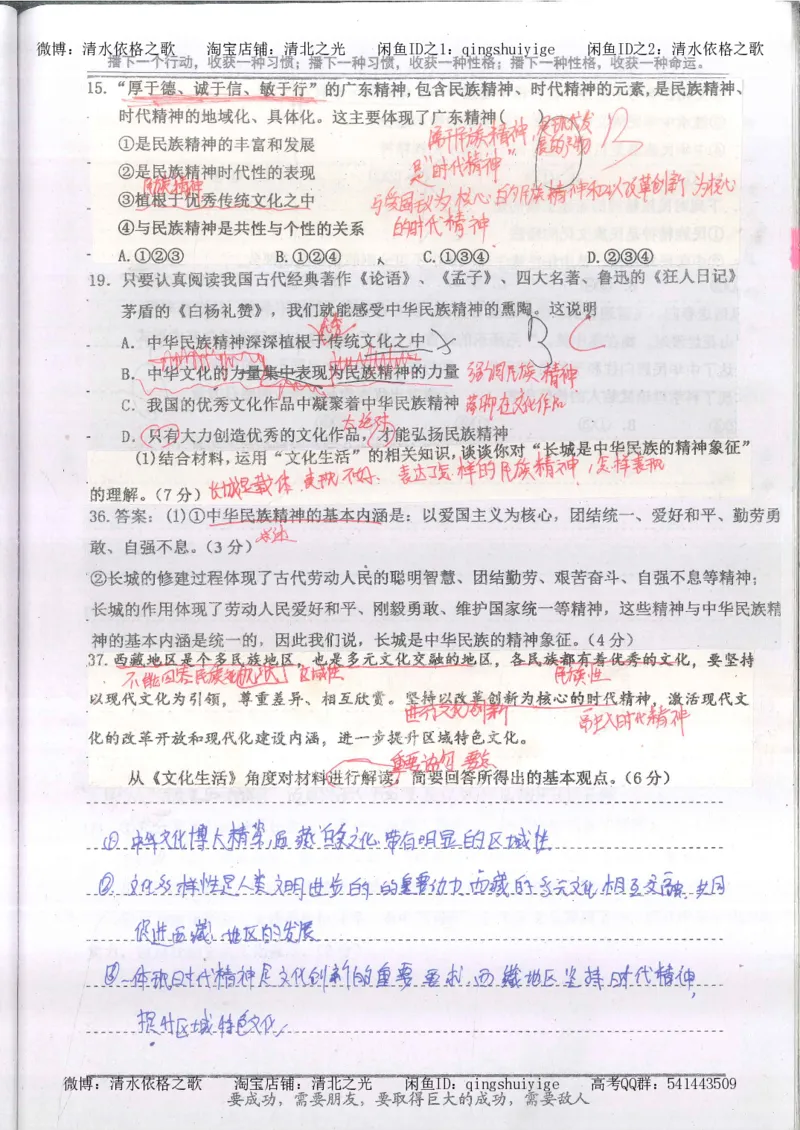 微博：清水依格之歌 淘宝店铺：清北之光 闲鱼ID之1：qingshuiyige 闲鱼ID之2：清水依格之歌
播下一个行动，收获一种习惯；播下一种习惯，收获一种性格；播下一种性格，收获一种命运。
15. “厚于德、诚于信、敏于行”的广东精神，包含民族精神、时代精神的元素，是民族精神、
时代精神的地域化、具体化。这主要体现了广东精神( ) B
①是民族精神的丰富和发展
②是民族精神时代性的表现
是“时代精神”
民族精神
③植根于优秀传统文化之中
与爱国主义为核心的民族精神和以改革创新为核心
的时代精神.
④与民族精神是共性与个性的关系
A.①②③ B.①②④ C.①③④ D.②③④
19. 只要认真阅读我国古代经典著作《论语》、《孟子》、四大名著、鲁迅的《狂人日记》
茅盾的《白杨礼赞》，我们就能感受中华民族精神的熏陶。这说明
C
A. 中华民族精神深深植根于传统文化之中
B. 中华文化的力量集中表现为民族精神的力量 强调民族精神
C. 我国的优秀文化作品中凝聚着中华民族精神
太绝对
D. 只有大力创造优秀的文化作品，才能弘扬民族精神
(1)结合材料，运用“文化生活”的相关知识，谈谈你对“长城是中华民族的精神象征”
的理解。（7 分） 长城是载体 表达了怎样的民族精神，怎样表现
36.答案：(1)①中华民族精神的基本内涵是：以爱国主义为核心，团结统一、爱好和平、勤劳勇
敢、自强不息。（3 分）
②长城的修建过程体现了古代劳动人民的聪明智慧、团结勤劳、艰苦奋斗、自强不息等精神；
长城的作用体现了劳动人民爱好和平、刚毅勇敢、维护国家统一等精神，这些精神与中华民族精
神的基本内涵是统一的，因此我们说，长城是中华民族的精神象征。（4 分）
37.西藏地区是个多民族地区，也是多元文化交融的地区，各民族都有着优秀的文化，要坚持
区域性 民族性
以现代文化为引领，尊重差异、相互欣赏。坚持以改革创新为核心的时代精神，激活现代文
进行文化创新 时代精神
化的改革开放和现代化建设内涵，进一步提升区域特色文化。
重要边句 要点
从《文化生活》角度对材料进行解读，简要回答所得出的基本观点。（6 分）
① 中华文化博大精深，西藏 文化带有明显的区域性
② 文化多样性是人类文明进步的 的重要动力 西藏的多元文化相互交融，共同
促进西藏 地区的发展
③ 体现时代精神是文化创新的重要要求，西藏地区坚持时代精神，
提升区域特色文化
微博：清水依格之歌 淘宝店铺：清北之光 闲鱼ID：qingshuiyige 高考QQ群：541443509
要成功，需要朋友，要取得巨大的成功，需要敌人